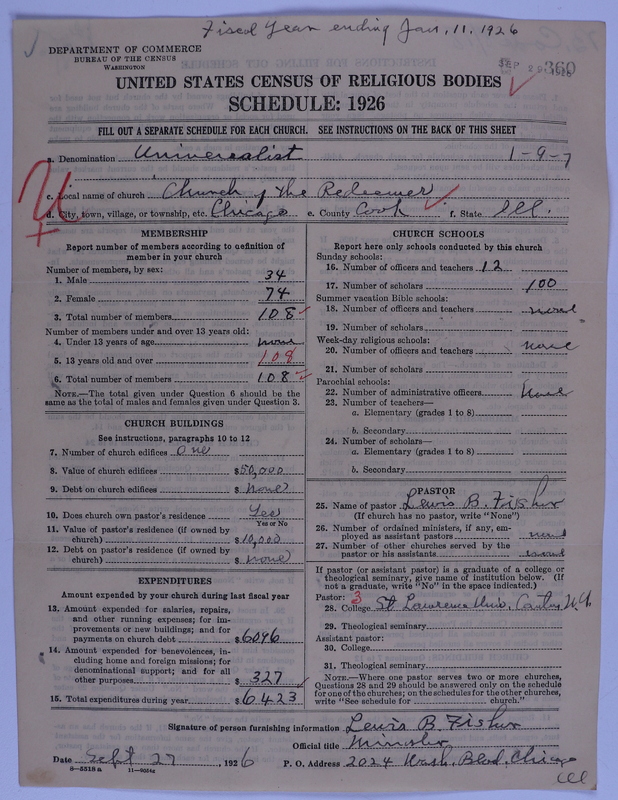 Fiscal Year ending Jan, 11. 1926
DEPARTMENT OF COMMERCE
BUREAU OF THE CENSUS
WASHINGTON
SEP 29 1926
360
UNITED STATES CENSUS OF RELIGIOUS BODIES
SCHEDULE: 1926
FILL OUT A SEPARATE SCHEDULE FOR EACH CHURCH. SEE INSTRUCTIONS ON THE BACK OF THIS SHEET
a. Denomination Universalist 1-9-7
c. Local name of church Church of The Redeemer
d. City, town, village, or township, etc. Chicago e. County Cook f. State Ill.
MEMBERSHIP
Report number of members according to definition of
member in your church
Number of members, by sex:
1. Male 34
2. Female 74
3. Total number of members 108
Number of members under and over 13 years old:
4. Under 13 years of age none
5. 13 years old and over 108
6. Total number of members 108
NOTE.—The total given under Question 6 should be
same as the total of males and females given under Question 3.
CHURCH BUILDINGS
See instructions, paragraphs 10 to 12
7. Number of church edifices One
8. Value of church edifices $50,000
9. Debt on church edifices $ none
10. Does church own pastor's residence Yes
Yes or No
11. Value of pastor's residence (if owned by
church) $10,000
12. Debt on pastor's residence (if owned by
church) $ none
EXPENDITURES
Amount expended by your church during last fiscal year
13. Amount expended for salaries, repairs,
and other running expenses; for im-
provements or new buildings; and for
payments on church debt $6096
14. Amount expended for benevolences, in-
cluding home and foreign missions; for
denominational support; and for all
other purposes $ 327
15. Total expenditures during year $6423
CHURCH SCHOOLS
Report here only schools conducted by this church
Sunday schools:
16. Number of officers and teachers 12
17. Number of scholars 100
Summer vacation Bible schools:
18. Number of officers and teachers none
19. Number of scholars
Week-day religious schools:
20. Number of officers and teachers none
21. Number of scholars
Parochial schools:
22. Number of administrative officers None
23. Number of teachers—
a. Elementary (grades 1 to 8)
b. Secondary
24. Number of scholars—
a. Elementary (grades 1 to 8)
b. Secondary
PASTOR
25. Name of pastor Lewis B. Fisher
(If church has no pastor, write "None")
26. Number of ordained ministers, if any, em-
ployed as assistant pastors none
27. Number of other churches served by the
pastor or his assistants none
If pastor (or assistant pastor) is a graduate of a college or
theological seminary, give name of institution below. (If
not a graduate, write "No" in the space indicated.)
Pastor: 3
28. College St Lawrence Univ, Canton N.Y.
29. Theological seminary
Assistant pastor:
30. College
31. Theological seminary
NOTE.—Where one pastor serves two or more churches,
Questions 28 and 29 should be answered only on the schedule
for one of the churches; on the schedules for the other churches,
write "See schedule for church."
Signature of person furnishing information Lewis B. Fisher
Official title Minister
Date Sept 27, 1926 P. O. Address 2024 Wash. Blvd, Chicago
Ill
8—5518 a 11—9024z